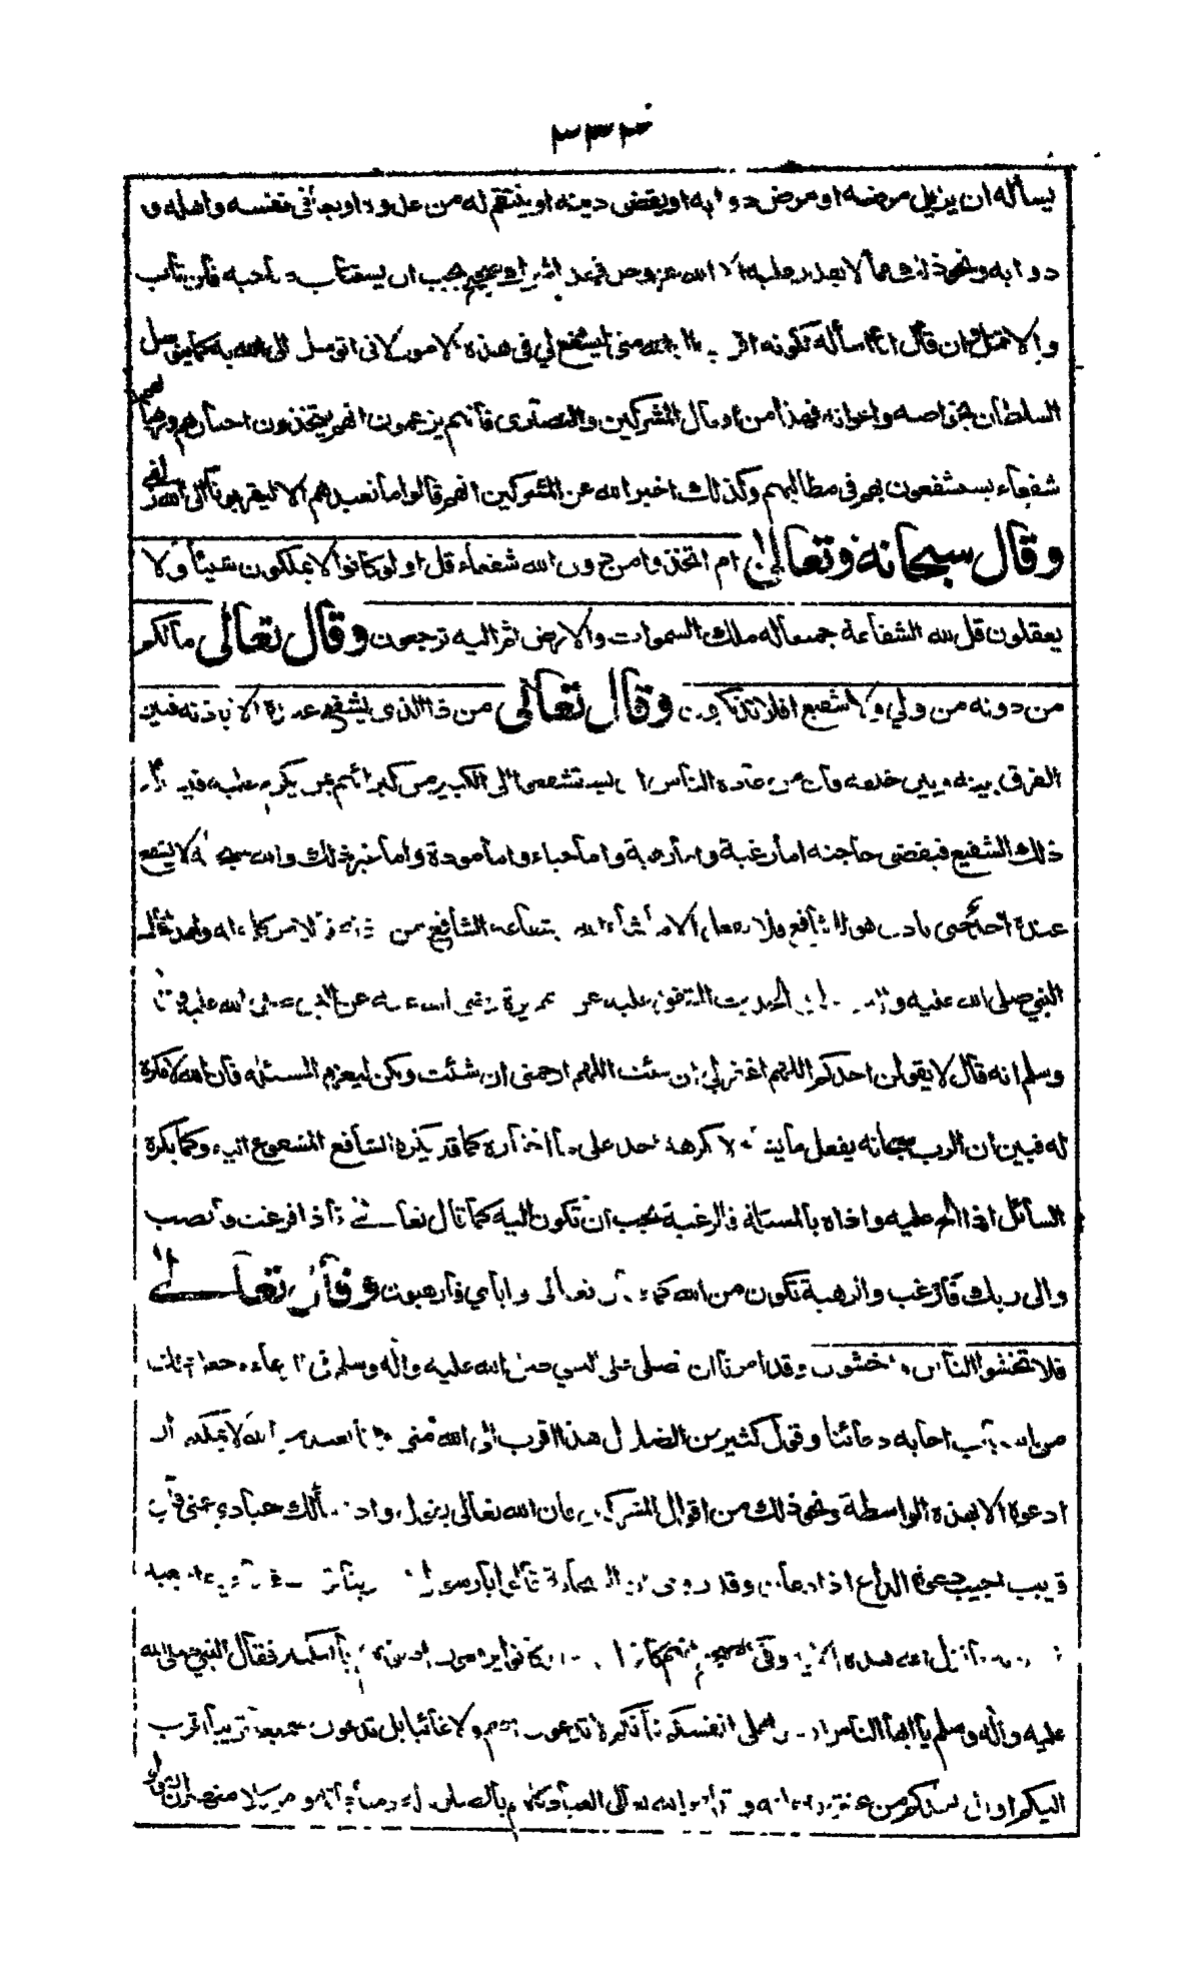 ٣٣٢
يسأله ان يزيل مرضه او مرض دوابه او يقضى دينه او ينتقم له من عدوه او يعافى نفسه واهله و
دوابه ونحو ذلك مما لا يقدر عليه الا الله عز وجل فهذا شرك صريح يجب ان يستتاب صاحبه فان تاب
والا قتل وان قال انا اسأله لكونه اقرب الى الله منى ليشفع لي فى هذه الامور لانى اتوسل الى الله به كما يتوسل
السلطان بخواصه واعوانه فهذا من افعال المشركين والنصارى فانهم يزعمون انهم يتخذون احبارهم ورهبانهم
شفعاء يستشفعون بهم فى مطالبهم وكذلك اخبر الله عن المشركين انهم قالوا ما نعبدهم الا ليقربونا الى الله زلفى
وقال سبحانه وتعالى ام اتخذوا من دون الله شفعاء قل اولو كانوا لا يملكون شيئا ولا
يعقلون قل لله الشفاعة جميعا له ملك السموات والارض ثم اليه ترجعون وقال تعالى مالكم
من دونه من ولي ولا شفيع افلا تتذكرون وقال تعالى من ذا الذى يشفع عنده الا باذنه فبين
الفرق بينه وبين خلقه فان من عادة الناس ان يستشفعوا الى الكبير من كبرائهم بمن يكرم عليه
ذلك الشفيع فيقضى حاجته اما رغبة واما رهبة واما حياء واما مودة واما غير ذلك والله سبحانه لا يشفع
عنده احد حتى يأذن هو للشافع فلا يفعل الا ما شاء الله
النبي صلى الله عليه و الحديث المتفق عليه عن هريرة رضى الله عنه عن النبي صلى الله عليه و
وسلم انه قال لا يقولن احدكم اللهم اغفر لي ان شئت اللهم ارحمنى ان شئت ولكن ليعزم المسئلة فان الله لا مكره
له فبين ان الرب سبحانه يفعل ما يشاء لا يكرهه احد على ما اختاره كما قد يكره الشافع المشفوع اليه وكما يكره
السائل اذا الح عليه واذاه بالمسئلة فالرغبة يجب ان تكون اليه كما قال تعالى فاذا فرغت فانصب
والى ربك فارغب والرهبة تكون من الله كما قال تعالى واياي فارهبون وقال تعالى
فلا تخشوا الناس واخشون وقد امرنا ان نصلى على النبي صلى الله عليه واله وسلم فى الدعاء وجعل ذلك
من اسباب اجابه دعائنا وقول كثير من الضلال هذا اقرب الى الله منى وانا بعيد من الله لا يمكننى ان
ادعوه الا بهذه الواسطة ونحو ذلك من اقوال المشركين فان الله تعالى يقول واذا سألك عبادي عنى فانى
قريب اجيب دعوة الداع اذا دعان وقد روى ان الصحابة قالوا يا رسول الله ربنا
انزل الله هذه الاية وفى الصحيح انهم كانوا فقال النبي صلى الله
عليه واله وسلم يا ايها الناس اربعوا على انفسكم فانكم لا تدعون اصم ولا غائبا بل تدعون سميعا قريبا اقرب
اليكم